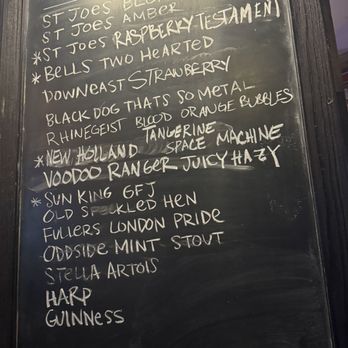 ST JOES
ST JOES AMBER
*ST JOES RASPBERRY TESTAMENT
*BELLS TWO HEARTED
DOWNEAST STRAWBERRY
BLACK DOG THATS SO METAL
RHINEGEIST BLOOD ORANGE BUBBLES
*NEW HOLLAND TANGERINE SPACE MACHINE
VOODOO RANGER JUICY HAZY
*SUN KING GFJ
OLD SPECKLED HEN
FULLERS LONDON PRIDE
ODDSIDE MINT STOUT
STELLA ARTOIS
HARP
GUINNESS